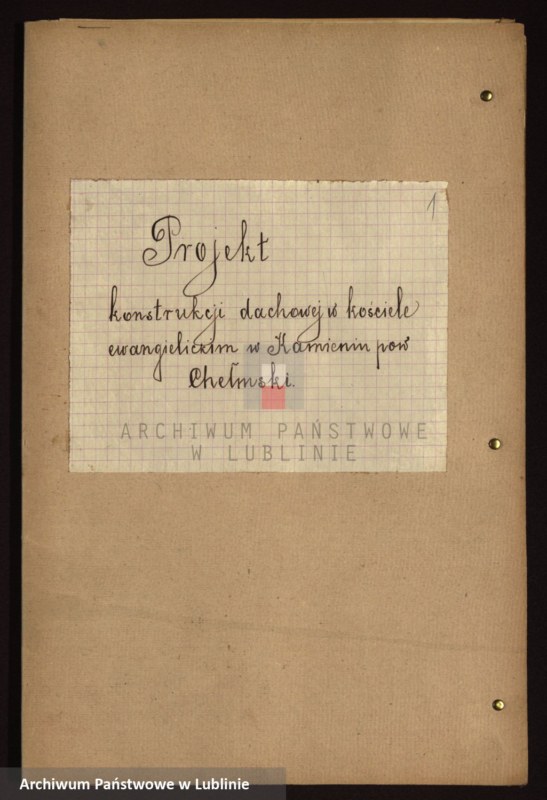 1
Projekt
konstrukcji dachowej w kościele
ewangielickim w Kamieniu pow
Chełmski.
ARCHIWUM PAŃSTWOWE
W LUBLINIE
Archiwum Państwowe w Lublinie